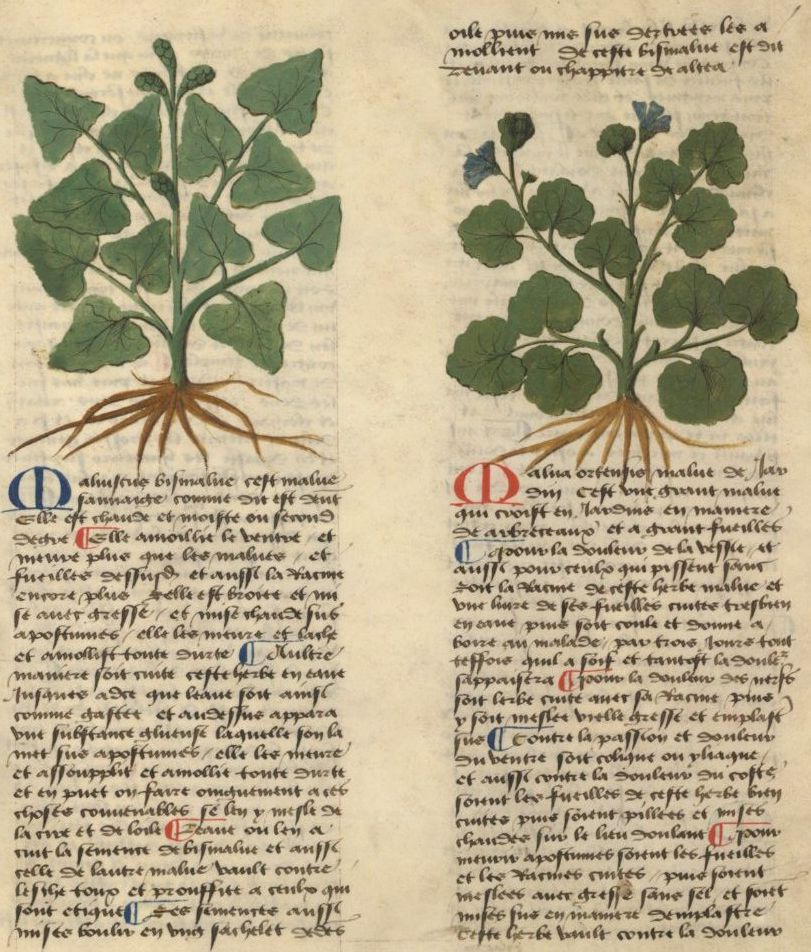 Maluiscus bismalue cest malue
sauuaige comme dit est deut
Elle est chaude et moiste ou second
degre Elle amoillie le ventre et
meure plus que les malues et
fueilles dessusd et aussi la Racine
encore plus selle est broiee et mi
se auec gresse et mise chaude sus
apostumes elle les meure et lache
et amollist toute durte Aultre
maniere soit cuite ceste herbe en eaue
Jusques adce que leaue soit ainsi
comme gastee et audessus appara
vne substance glueuse laquelle son la
met sus apostumes elle les meure
et assoupplit et amollie toute durte
et en puet on faire oingnement a ces
choses conuenables se len y mesle de
la cire et de loile Leaue ou len a
cuit la semence de bismalue et aussi
celle de lautre malue vault contre
lesche toux et prouffite a ceulx qui
sont etiques Les semences aussi
mises boulir en ung sachelet dedes
oile puis mis sus dertrees les a
mollient de ceste bismalue est dit
deuant ou chappitre de altea
Malua ortensis malue de Jar
din Cest vne grant malue
qui croist en Jardins en maniere
de arbreceaux et a grant fueilles
pour la douleur de la vessie et
aussi pour ceulx qui pissent sanc
soit la Racine de ceste herbe malue et
vne liure de ses fueilles cuites tresbien
en eaue puis soit coule et donne a
boire au malade par trois Jours tout
teffois quil a soif et tantost la douler
sappaisera pour la douleur des nerfs
soit lerbe cuite auec sa Racine puis
y soit meslee vielle gresse et emplast
sus Contre la passion et douleur
du ventre soit colique ou yliaque
et aussi contre la douleur du coste
soient les fueilles de ceste herbe bien
cuites puis soient pillees et mises
chaudes sur le lieu doulant pour
meurir apostumes soient les fueilles
et les Racines cuites puis soient
meslees auec gresse sans sel et soiet
mises sus en maniere demplastre
Ceste herbe vault contre la douleur